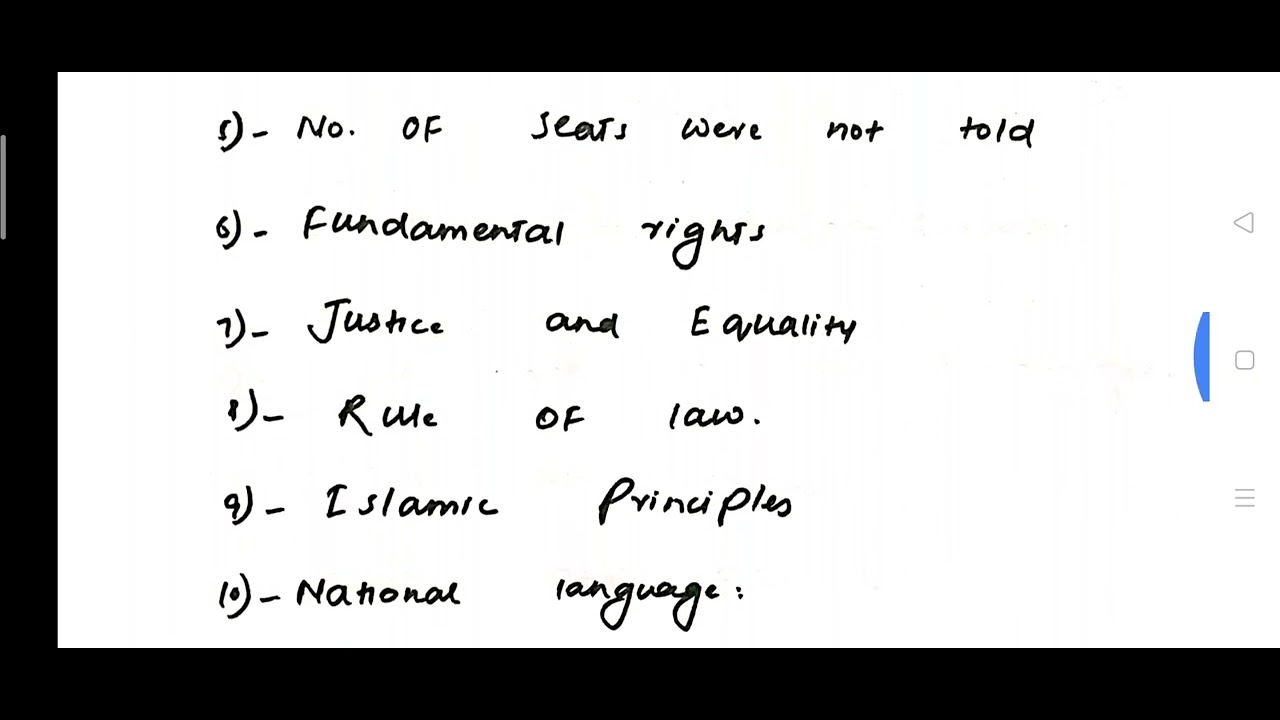 5)- No. OF seats were not told
6)- Fundamental rights
7)- Justice and Equality
8)- Rule OF law.
9)- Islamic Principles
10)- National language: